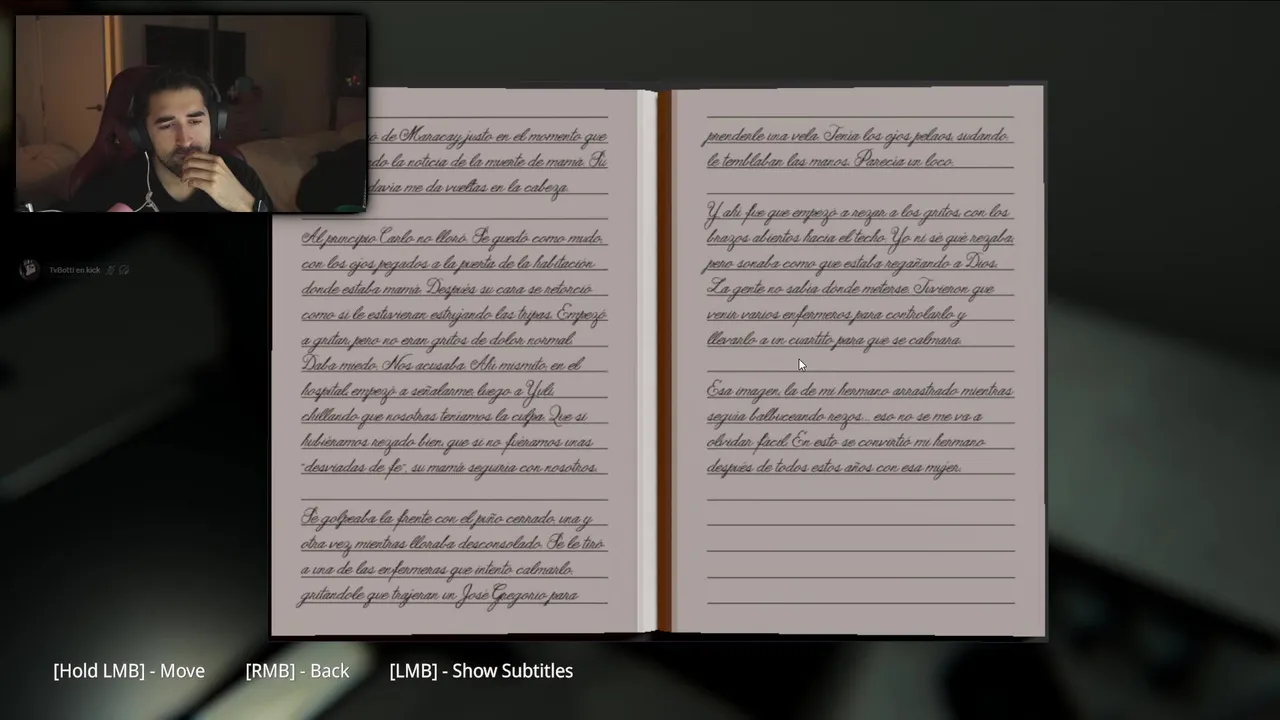 o de Maracay justo en el momento que
ndo la noticia de la muerte de mamá. Su
davía me da vueltas en la cabeza.
Al principio Carlo no lloró. Se quedó como mudo,
con los ojos pegados a la puerta de la habitación
donde estaba mamá. Después su cara se retorció
como si le estuvieran estrujando las tripas. Empezó
a gritar, pero no eran gritos de dolor normal.
Daba miedo. Nos acusaba. Ahí mismito, en el
hospital, empezó a señalarme, luego a Yuli,
chillando que nosotras teníamos la culpa. Que si
hubiéramos rezado bien, que si no fuéramos unas
"desviadas de fe", su mamá seguiría con nosotros.
Se golpeaba la frente con el puño cerrado, una y
otra vez, mientras lloraba desconsolado. Se le tiró
a una de las enfermeras que intentó calmarlo,
gritándole que trajeran un José Gregorio para
prenderle una vela. Tenía los ojos pelaos, sudando,
le temblaban las manos. Parecía un loco.
Y ahí fue que empezó a rezar a los gritos, con los
brazos abiertos hacia el techo. Yo ni sé qué rezaba,
pero sonaba como que estaba regañando a Dios.
La gente no sabía dónde meterse. Tuvieron que
venir varios enfermeros para controlarlo y
llevarlo a un cuartito para que se calmara.
Esa imagen, la de mi hermano arrastrado mientras
seguía balbuceando rezos... eso no se me va a
olvidar fácil. En esto se convirtió mi hermano
después de todos estos años con esa mujer.
TxBotti en kick
[Hold LMB] - Move [RMB] - Back [LMB] - Show Subtitles